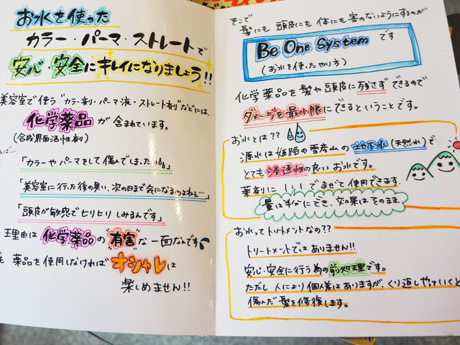 お水を使った
カラー・パーマ・ストレートで
安心・安全にキレイになりましょう!!
美容室で使う"カラー剤・パーマ液・ストレート剤"などには、
化学薬品が含まれています。
(合成界面活性剤)
「カラーやパーマをして傷んでしまった」
「美容室に行った後の臭い、次の日まで気になるのよねぇ」
「頭皮が敏感でヒリヒリしみるんです」
理由は化学薬品の"有害"な一面なんです
薬品を使用しなければオシャレは
楽しめません!!
そこで
髪にも頭皮にも体にも害のないようにするのが
Be One System です
(お水を使ったやり方)
化学薬品を髪や頭皮に残さずできるので
ダメージを最小限にできるということです。
お水とは??
源水は姫路の雪彦山の地下水(天然水)で
とても浸透性の良いお水です。
薬剤に1:1でまぜて使用できます。
量は半分にでき、効果はそのまま
お水ってトリートメントなの??
トリートメントではありません!!
安心・安全に行う為の前処理です。
ただし人により個人差はありますが、くり返しやっていくと
傷んだ髪を修復します。